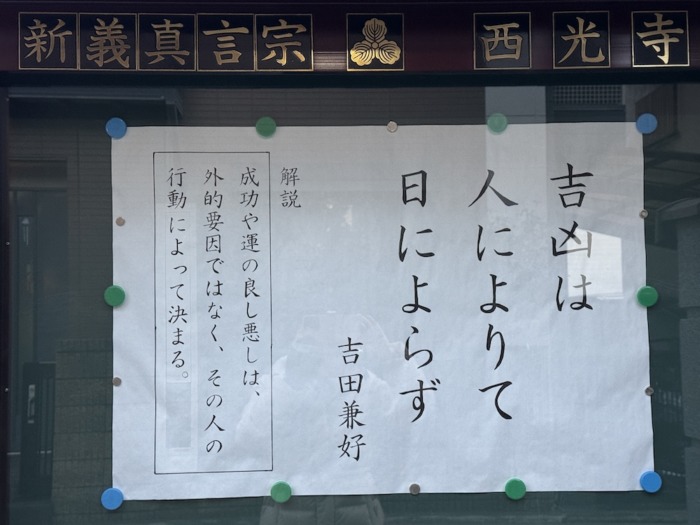 新義真言宗 西光寺
吉凶は
人によりて
日によらず
吉田兼好
解説
成功や運の良し悪しは、
外的要因ではなく、その人の
行動によって決まる。